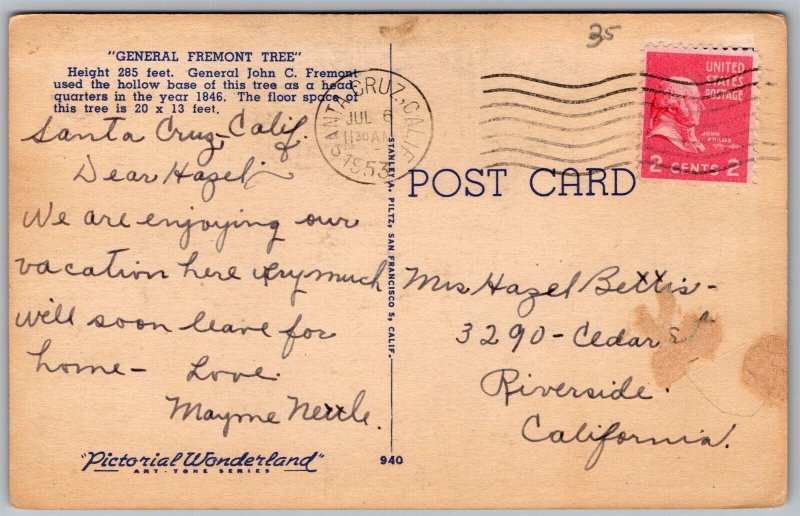 "GENERAL FREMONT TREE"
Height 285 feet. General John C. Fremont
used the hollow base of this tree as a head-
quarters in the year 1846. The floor space of
this tree is 20 x 13 feet.
Santa Cruz, Calif.
Dear Hazel,
We are enjoying our
vacation here very much
will soon leave for
home- Love.
Mayme Nettle.
"Pictorial Wonderland"
ART-TONE SERIES
940
STANLEY A. PILTZ, SAN FRANCISCO 5, CALIF.
SANTA CRUZ, CALIF.
JUL 6
11 30 AM
1953
35
UNITED
STATES
POSTAGE
JOHN
ADAMS
2 CENTS 2
POST CARD
Mrs Hazel Bettis-
3290-Cedar St
Riverside.
California.